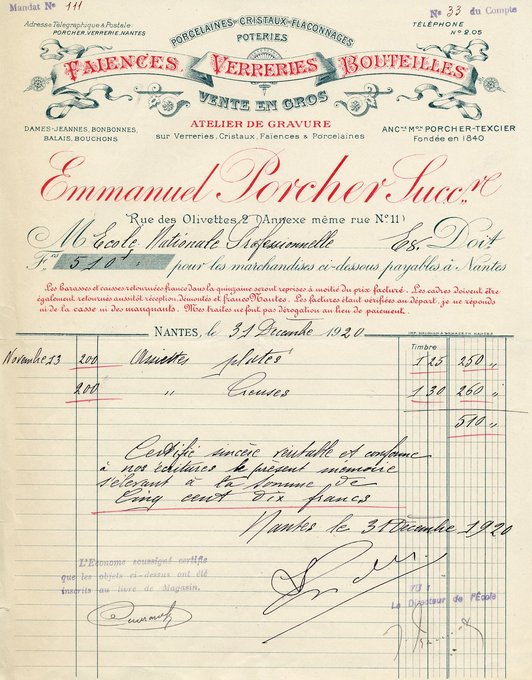 Mandat N° 111
N° 33 du Compte
Adresse Télégraphique & Postale
PORCHER, VERRERIE, NANTES
TÉLÉPHONE
N° 2.05
PORCELAINES - CRISTAUX - FLACONNAGES
POTERIES
FAIENCES VERRERIES BOUTEILLES
VENTE EN GROS
ATELIER DE GRAVURE
sur Verreries, Cristaux, Faiences & Porcelaines
DAMES-JEANNES, BONBONNES,
BALAIS, BOUCHONS
ANC.NE M.ON PORCHER-TEXCIER
Fondée en 1840
Emmanuel Porcher Succ.re
Rue des Olivettes 2 (Annexe même rue N° 11)
M Ecole Nationale Professionnelle Doit
F.cs 510 f pour les marchandises ci-dessous payables à Nantes
Les barasses et caisses retournées franco dans la quinzaine seront reprises à moitié du prix facturé. Les cadres doivent être
également retournés aussitôt réception, démontés et franco Nantes. Les factures étant vérifiées au départ, je ne réponds
ni de la casse ni des manquants. Mes traites ne font pas dérogation au lieu de paiement.
NANTES, le 31 Décembre 1920
Timbre
Novembre 13 200 Assiettes plates 1 25 250 "
200 " Creuses 1 30 260 "
510 "
Certifié sincère véritable et conforme
à nos écritures le présent mémoire
s'élevant à la somme de
Cinq cent dix francs
Nantes le 31 Décembre 1920
L'Econome soussigné certifie
que les objets ci-dessus ont été
inscrits au livre de Magasin.
VU :
Le Directeur de l'École